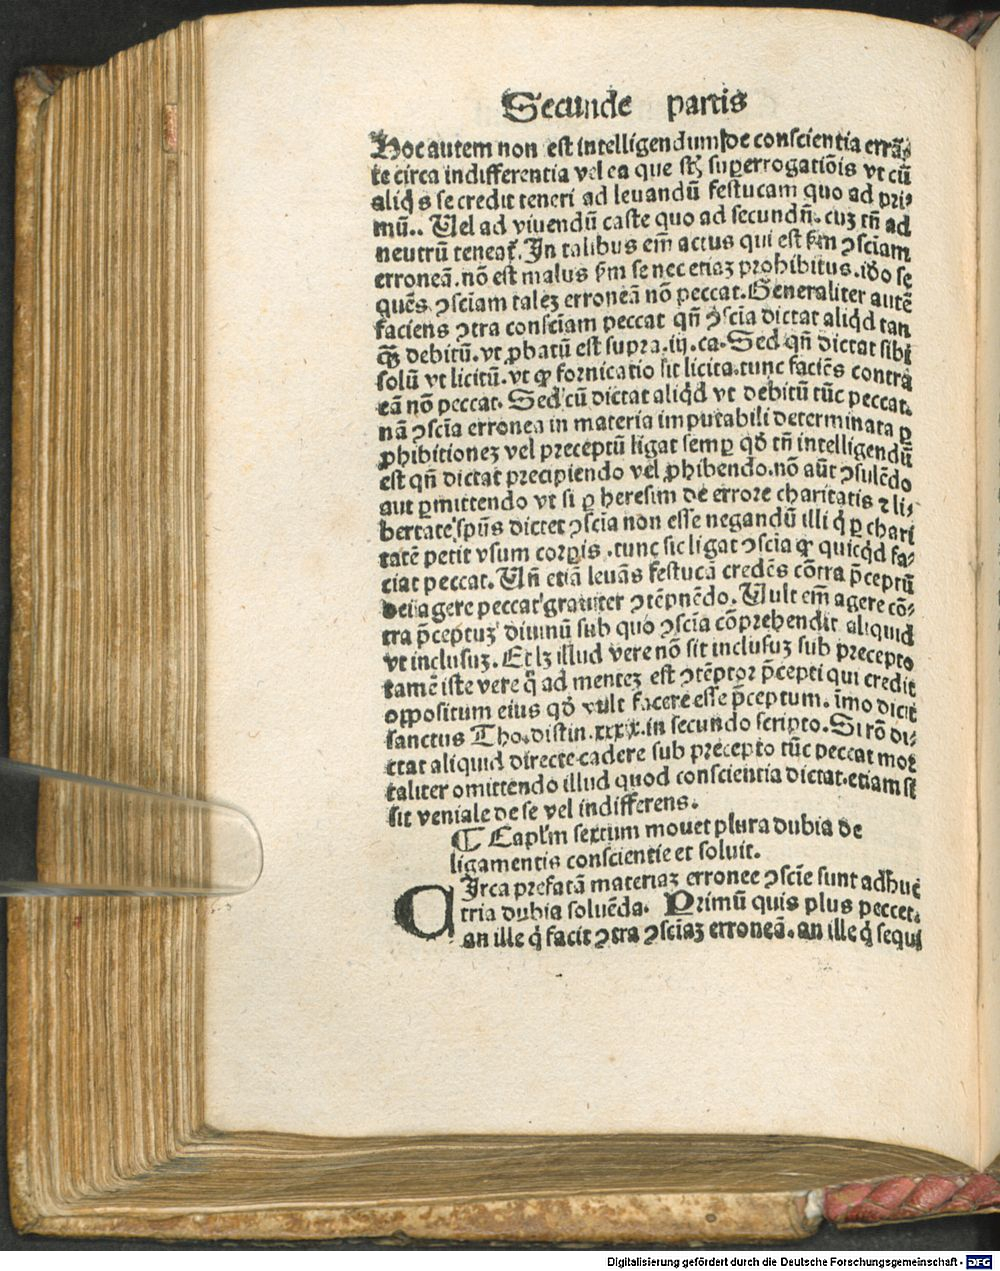 Secunde partis
Hoc autem non est intelligendum de conscientia errā⸗
te circa indifferentia vel ea que sūt superrogatiōis vt cū
aliqͥs se credit teneri ad levandū festucam quo ad pri⸗
mū.. Uel ad viuendū caste quo ad secundū. cuʒ tn̄ ad
neutrū teneat᷑. In talibus em̄ actus qui est ẜm ꝯsciam
erroneā. nō est malus ẜm se nec etiaʒ prohibitus. iō se
quēs ꝯsciam taleʒ erroneā nō peccat. Generaliter autē
faciens ꝯtra consciam peccat qn̄ ꝯscīa dictat aliqͥd tan
qꝫ debitū. vt ꝓbatū est supra. iij. ca. Sed qn̄ dictat sibi
solū vt licitū. vt ꝙ fornicatio sit licita. tunc faciēs contra
eā nō peccat. Sed cū dictat aliqͥd vt debitū tūc peccat.
nā ꝯscīa erronea in materia imputabili determinata ꝑ
ꝓhibitioneʒ vel preceptū ligat semꝑ qḋ tn̄ intelligendū
est qn̄ dictat precipiendo vel ꝓhibendo. nō aūt ꝯsulēdo
aut ꝑmittendo vt si ꝑ heresim de errore charitatis ⁊ li⸗
bertate spūs dictet ꝯscīa non esse negandū illi qͥ ꝑ chari
tatē petit vsum corꝑis. tunc sic ligat ꝯscīa ꝙ quicqͥd fa⸗
ciat peccat. Un̄ etiā leuās festucā credēs cōtra p̄ceptū
dei agere peccat grauiter ꝯtēpnēdo. Uult em̄ agere cō⸗
tra p̄ceptuʒ diuinū sub quo ꝯscīa cōprehendit aliquid
vt inclusuʒ. Et lʒ illud vere nō sit inclusuʒ sub precepto
tamē iste vere qͣ ad menteʒ est ꝯtēptor p̄cepti qui credit
oppositum eius qḋ vult facere esse p̄ceptum. īmo dicit
sanctus Tho. distin. xxxix. in secundo scripto. Si rō di⸗
ctat aliquid directe cadere sub precepto tūc peccat mor
taliter omittendo illud quod conscientia dictat. etiam si
sit veniale de se vel indifferens.
¶ Capl̄m sextum mouet plura dubia de
ligamentis conscientie et soluit.
CIrca prefatā materiaʒ erronee ꝯscīe sunt adhuc
tria dubia soluēda. Primū quis plus peccet.
an ille qͥ facit ꝯtra ꝯscīaʒ erroneā. an ille qͥ sequi
Digitalisierung gefördert durch die Deutsche Forschungsgemeinschaft - DFG